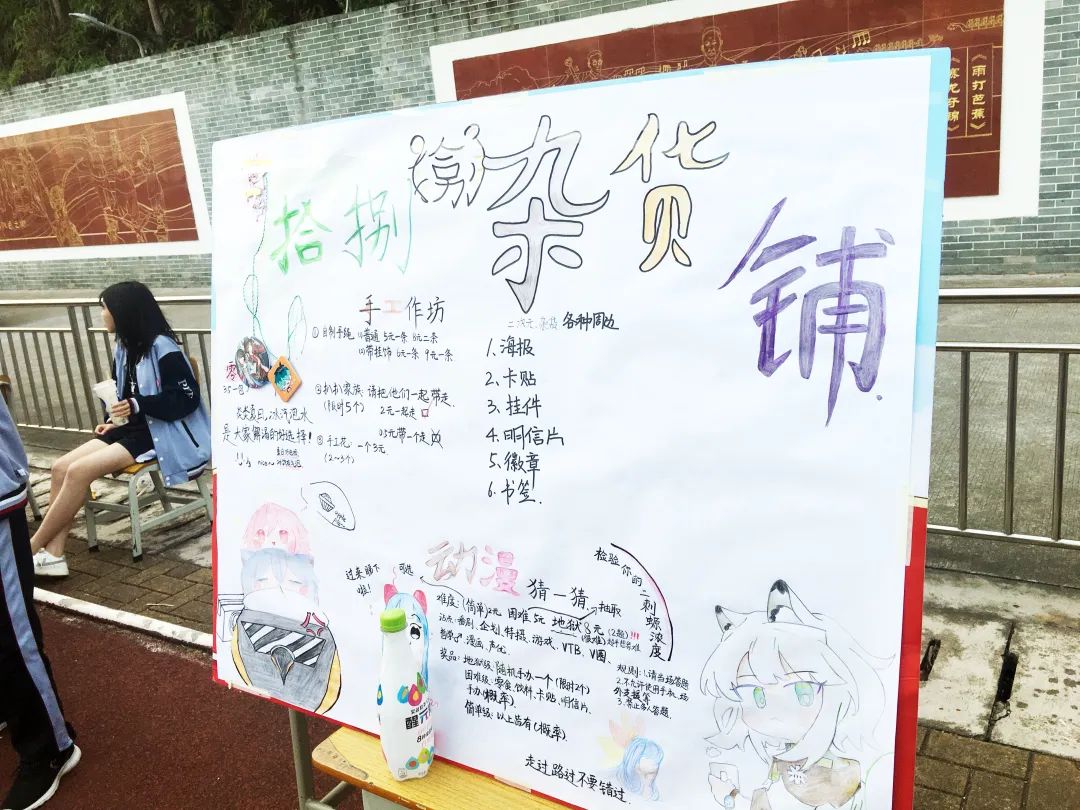 拾捌
杂货铺
手工作坊
① 自制手绳 (1)普通 5元一条 8元二条
(2)带挂饰 6元一条 9元一条
零
35一包
炎炎夏日,冰汽泡水
是大家解渴的好选择!
② 扒扒家族:请把他们一起带走.
(限时5个) 2元一起走
0.5元带一个走
③ 手工花: 一个3元
(2~3个)
二次元.杂货 各种周边
1.海报
2.卡贴
3.挂件
4.明信片
5.徽章
6.书签.
动漫
猜一猜
抽取
检验你的二刺螈浓度
过来瞅下
啦!
可选
难度:(简单)2元 困难5元 地狱8元(2题)!!!
站点:番剧、企划、特摄、游戏、VTB、V圈、
漫画、声优
奖品:地狱级:随机手办一个(限时2个)
困难级:零食、饮料、卡贴、明信片.
手办(概率).
简单级:以上皆有(概率).
规则:1.请当场答题
2.不允许使用手机、场
外支援等
3.禁止多人答题.
走过路过不要错过.
醒
雨打芭蕉